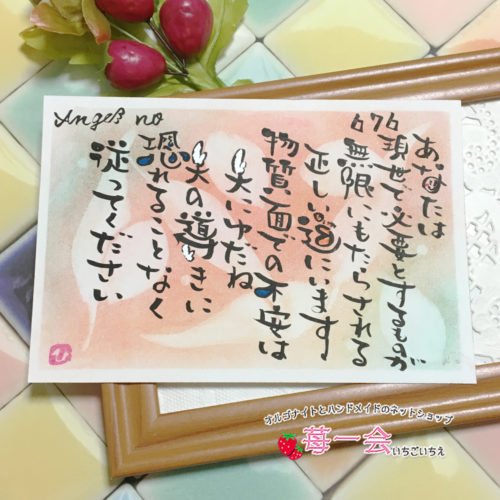 Angel no
676
あなたは
現世で必要とするものが
無限にもたらされる
正しい道にいます
物質面での不安は
天にゆだね
天の導きに
恐れることなく
従ってください
ひ
オルゴナイトとハンドメイドのネットショップ
苺一会 いちごいちえ